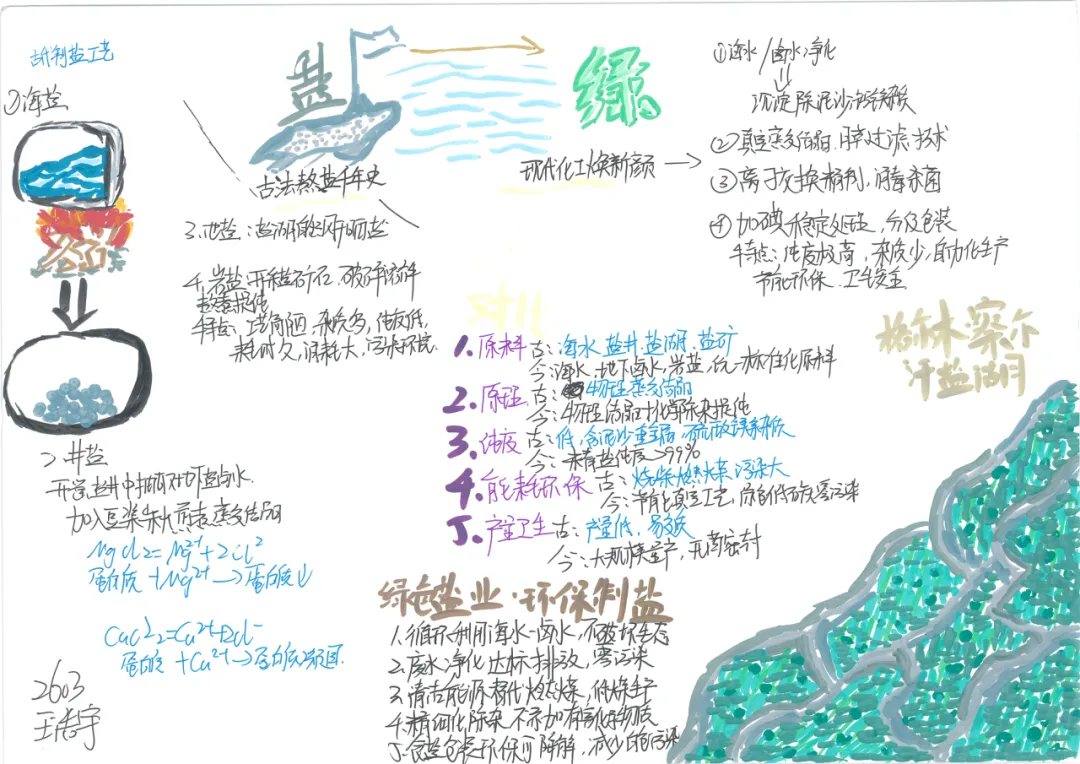 古代制盐工艺
①海盐
盐
绿
古法熬盐千年史
现代化工焕新颜
①海水/卤水净化
沉淀除泥沙等杂质
②真空蒸发结晶,膜过滤技术
③离子交换精制,消毒杀菌
④加碘稳定处理,分级包装
特点:纯度极高,杂质少,自动化生产
节能环保.卫生安全
3.池盐:盐湖自然风吹日晒盐
4.岩盐:开采矿石,破碎溶解
蒸煮提纯
特点:工艺简陋,杂质多,纯度低,
耗时久,消耗大,污染环境
2.井盐
开凿盐井中抽取地下卤水
加入豆浆去杂煎煮蒸发结晶
MgCl2=Mg2++2Cl2
蛋白质+Mg2+→蛋白质↓
CaCl2=Ca2++2Cl-
蛋白质+Ca2+→蛋白质凝固
2603
对比
1.原料 古:海水 盐井.盐湖.盐矿
今:海水.地下卤水,岩盐,统一标准化原料
2.原理 古:物理蒸发结晶
今:物理结晶+化学除杂提纯
3.纯度 古:低,含泥沙重金属,硫酸镁杂质
今:精制盐纯度>99%
4.能耗环保 古:烧柴燃煤 污染大
今:节能真空工艺,降能低碳零污染
5.产量卫生 古:产量低,易变质
今:大规模量产,无菌密封
绿色盐业·环保制盐
1.循环利用海水-卤水,不破坏生态
2.废水净化达标排放,零污染
3.清洁能源替代燃煤,低碳生产
4.精细化除杂 不添加有害化学物质
5.食盐包装环保可降解,减少白色污染
格尔木察尔
汗盐湖